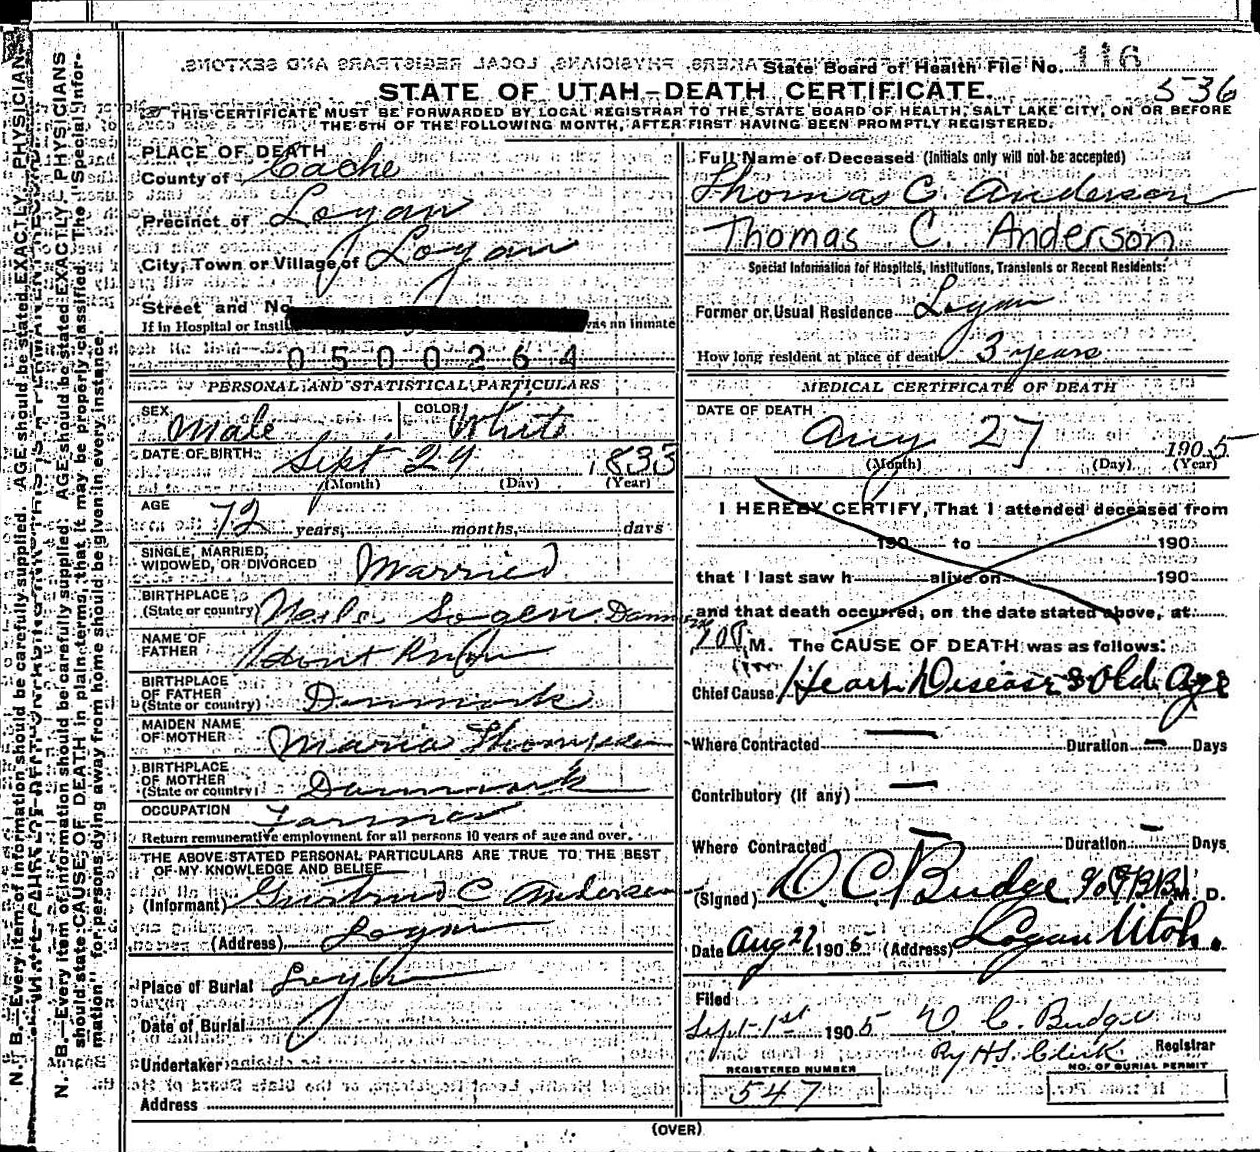 State Board of Health File No. 116
536
STATE OF UTAH—DEATH CERTIFICATE.
THIS CERTIFICATE MUST BE FORWARDED BY LOCAL REGISTRAR TO THE STATE BOARD OF HEALTH, SALT LAKE CITY, ON OR BEFORE
THE 5TH OF THE FOLLOWING MONTH, AFTER FIRST HAVING BEEN PROMPTLY REGISTERED.
PLACE OF DEATH
County of Cache
Precinct of Logan
City, Town or Village of Logan
Street and No
If in Hospital or Instit as an inmate
0500264
PERSONAL AND STATISTICAL PARTICULARS
SEX Male COLOR White
DATE OF BIRTH Sept 24 1833
(Month) (Day) (Year)
AGE
72 years, months, days
SINGLE, MARRIED, WIDOWED, OR DIVORCED Married
BIRTHPLACE
(State or country)
NAME OF FATHER
BIRTHPLACE OF FATHER (State or country) Denmark
MAIDEN NAME OF MOTHER Maria Thompson
BIRTHPLACE OF MOTHER (State or country) Denmark
OCCUPATION Farmer
Return remunerative employment for all persons 10 years of age and over.
THE ABOVE STATED PERSONAL PARTICULARS ARE TRUE TO THE BEST
OF MY KNOWLEDGE AND BELIEF
(Informant) C Andersen
(Address) Logan
Place of Burial Logan
Date of Burial
Undertaker
Address
Full Name of Deceased (Initials only will not be accepted)
Thomas C. Anderson
Thomas C. Anderson
Special Information for Hospitals, Institutions, Transients or Recent Residents:
Former or Usual Residence Logan
How long resident at place of death 3 years
MEDICAL CERTIFICATE OF DEATH
DATE OF DEATH
Aug 27 1905
(Month) (Day) (Year)
I HEREBY CERTIFY, That I attended deceased from
190 to 190
that I last saw h alive on 190
and that death occurred, on the date stated above, at
M. The CAUSE OF DEATH was as follows:
Chief Cause Heart Disease & Old Age
Where Contracted — Duration — Days
Contributory (if any) —
Where Contracted — Duration — Days
(Signed) D. C. Budge M. D.
Date Aug 27 1905 (Address) Logan Utah.
Filed
Sept 1st 1905 D. C. Budge
Registrar
By H.S. Clerk
REGISTERED NUMBER
547
NO. OF BURIAL PERMIT
(OVER)
N. B.—Every item of information should be carefully supplied. AGE should be stated EXACTLY. PHYSICIANS
should state CAUSE OF DEATH in plain terms, that it may be properly classified. The "Special Infor-
mation" for persons dying away from home should be given in every instance.